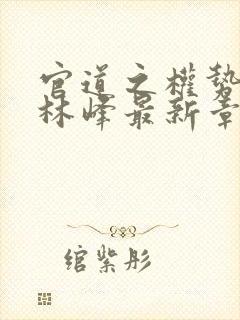 官道之權勢
林峰最新章
绾紫彤